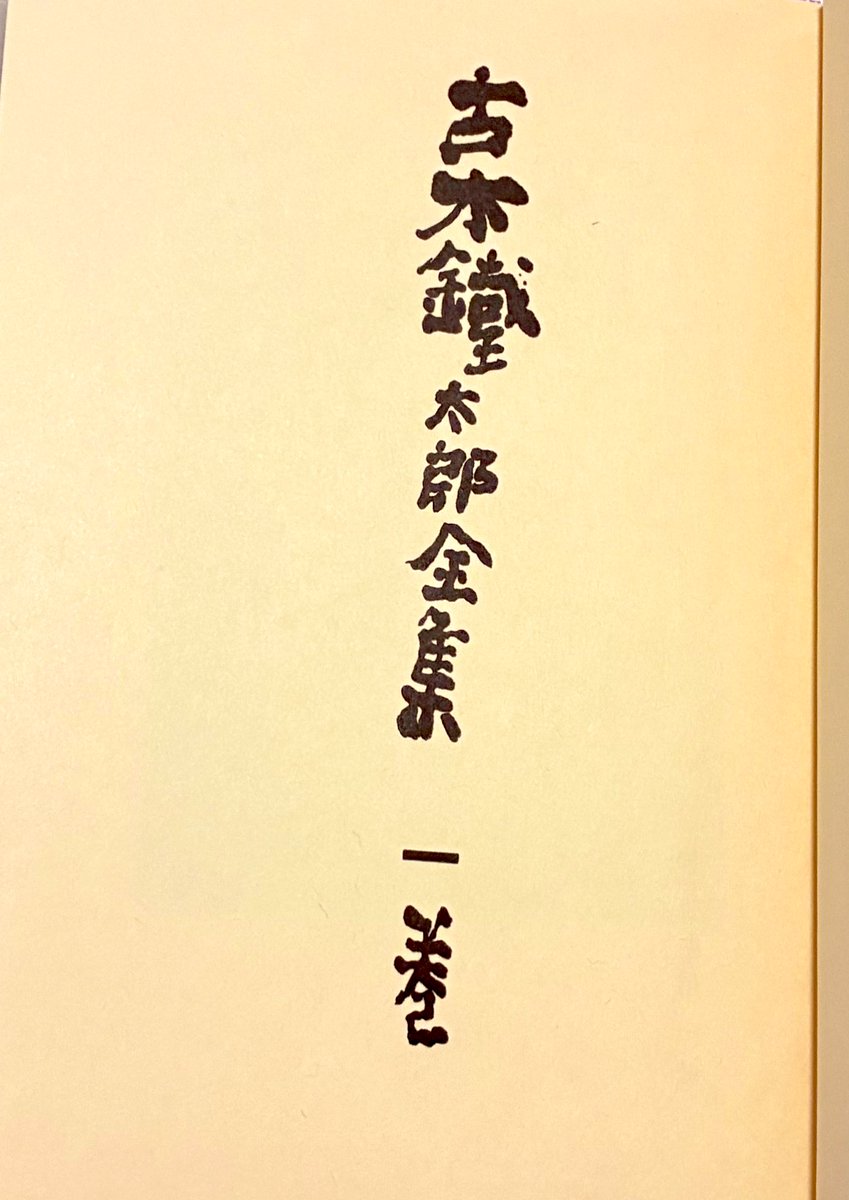 古木鐵太郎全集 一巻